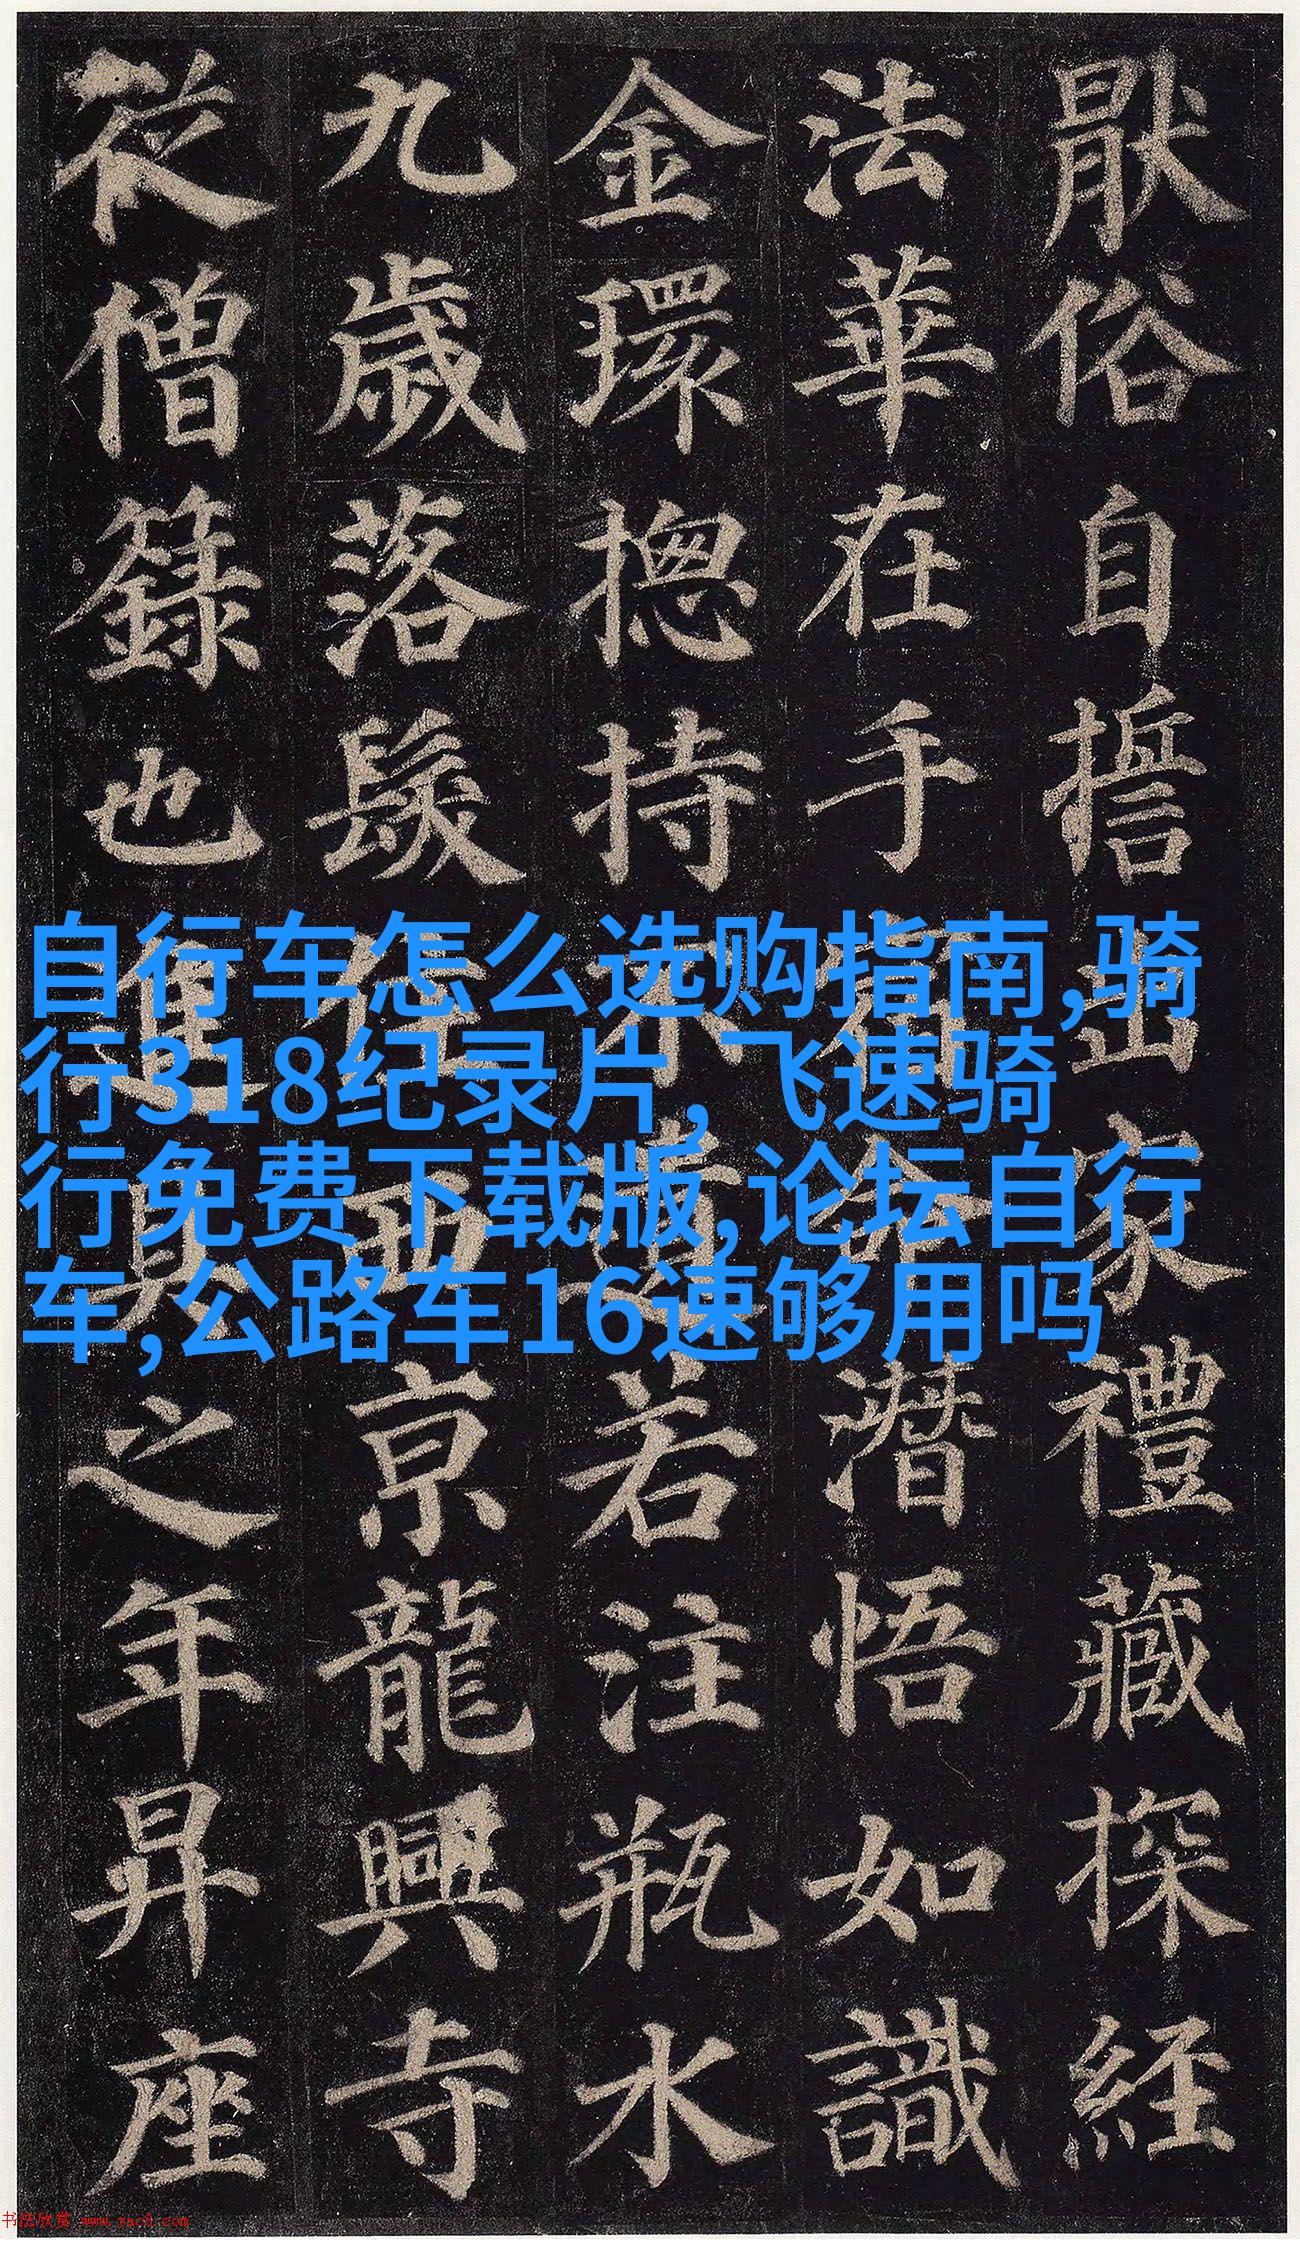 猒俗自誓出家禮藏探經
法華在手宿命潛悟如識
金環揔持不遺若注瓶水
九歲落髮住西京龍興寺
從僧籙也進具之年昇座
自行车怎么选购指南,骑
行318纪录片, 飞速骑
行免费下载版,论坛自行
车,公路车16速够用吗
书法欣赏 www.yac8.com